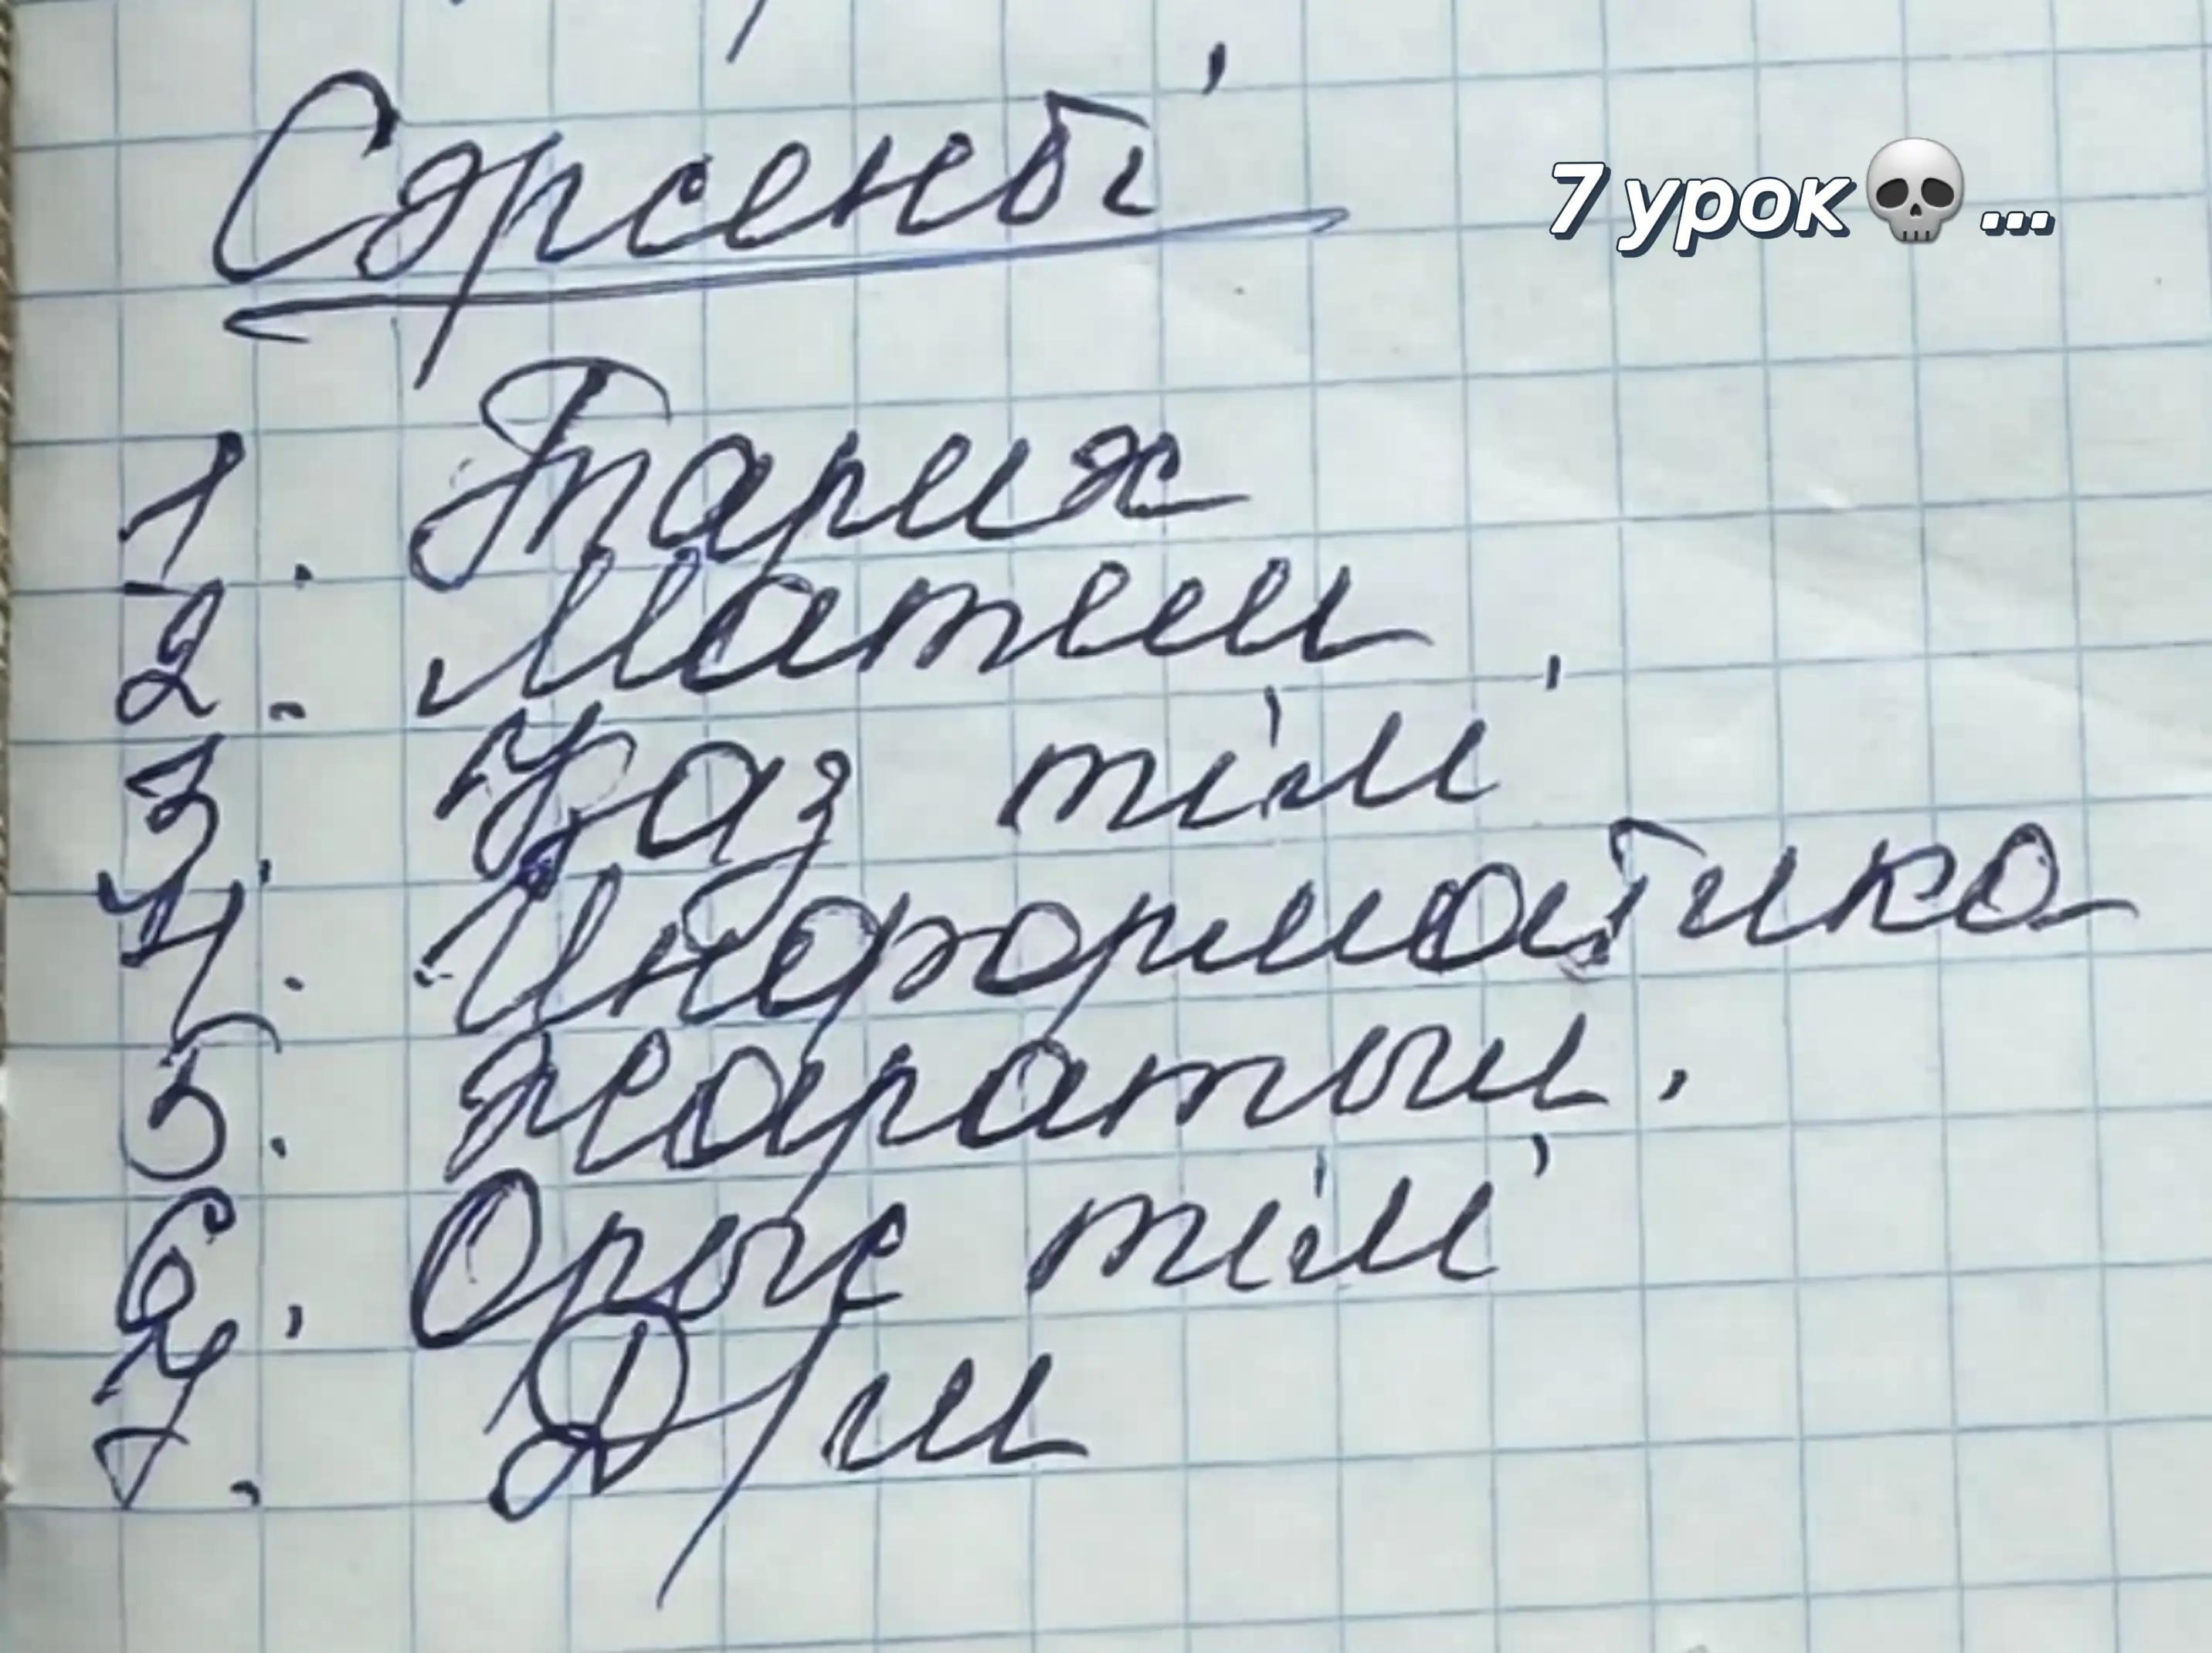 Сәрсенбі
7 урок💀...
1. Тарих
2. Матем
3. Қаз тілі
4. Информатика
5. Жаратыл.
6. Орыс тілі
7. Д/ш